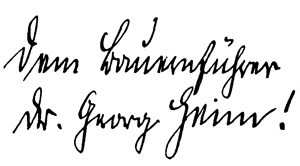 Dem Bauernführer
Dr. Georg Heim!